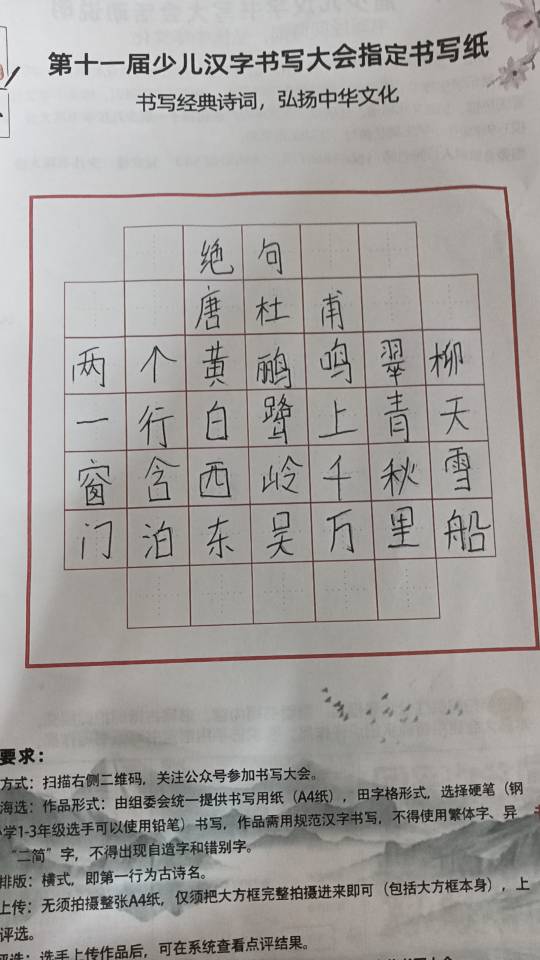 第十一届少儿汉字书写大会指定书写纸
书写经典诗词，弘扬中华文化
绝句
唐杜甫
两个黄鹂鸣翠柳
一行白鹭上青天
窗含西岭千秋雪
门泊东吴万里船
要求：
方式：扫描右侧二维码，关注公众号参加书写大会。
海选：作品形式：由组委会统一提供书写用纸（A4纸），田字格形式，选择硬笔（钢
小学1-3年级选手可以使用铅笔）书写，作品需用规范汉字书写，不得使用繁体字、异
“二简”字，不得出现自造字和错别字。
排版：横式，即第一行为古诗名。
上传：无须拍摄整张A4纸，仅须把大方框完整拍摄进来即可（包括大方框本身），上
评选。
评选：选手上传作品后，可在系统查看点评结果。